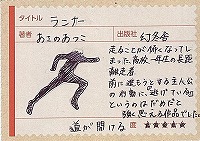 タイトル ランナー
著者 あさのあつこ 出版社 幻冬舎
走ることが怖くなってし
まった高校一年生の長距
離走者
前に進もうとする主人公
の行動に、逃げていた自分
というのはだめだと
強く思える作品でした。
道が開ける 度 ★★★★★